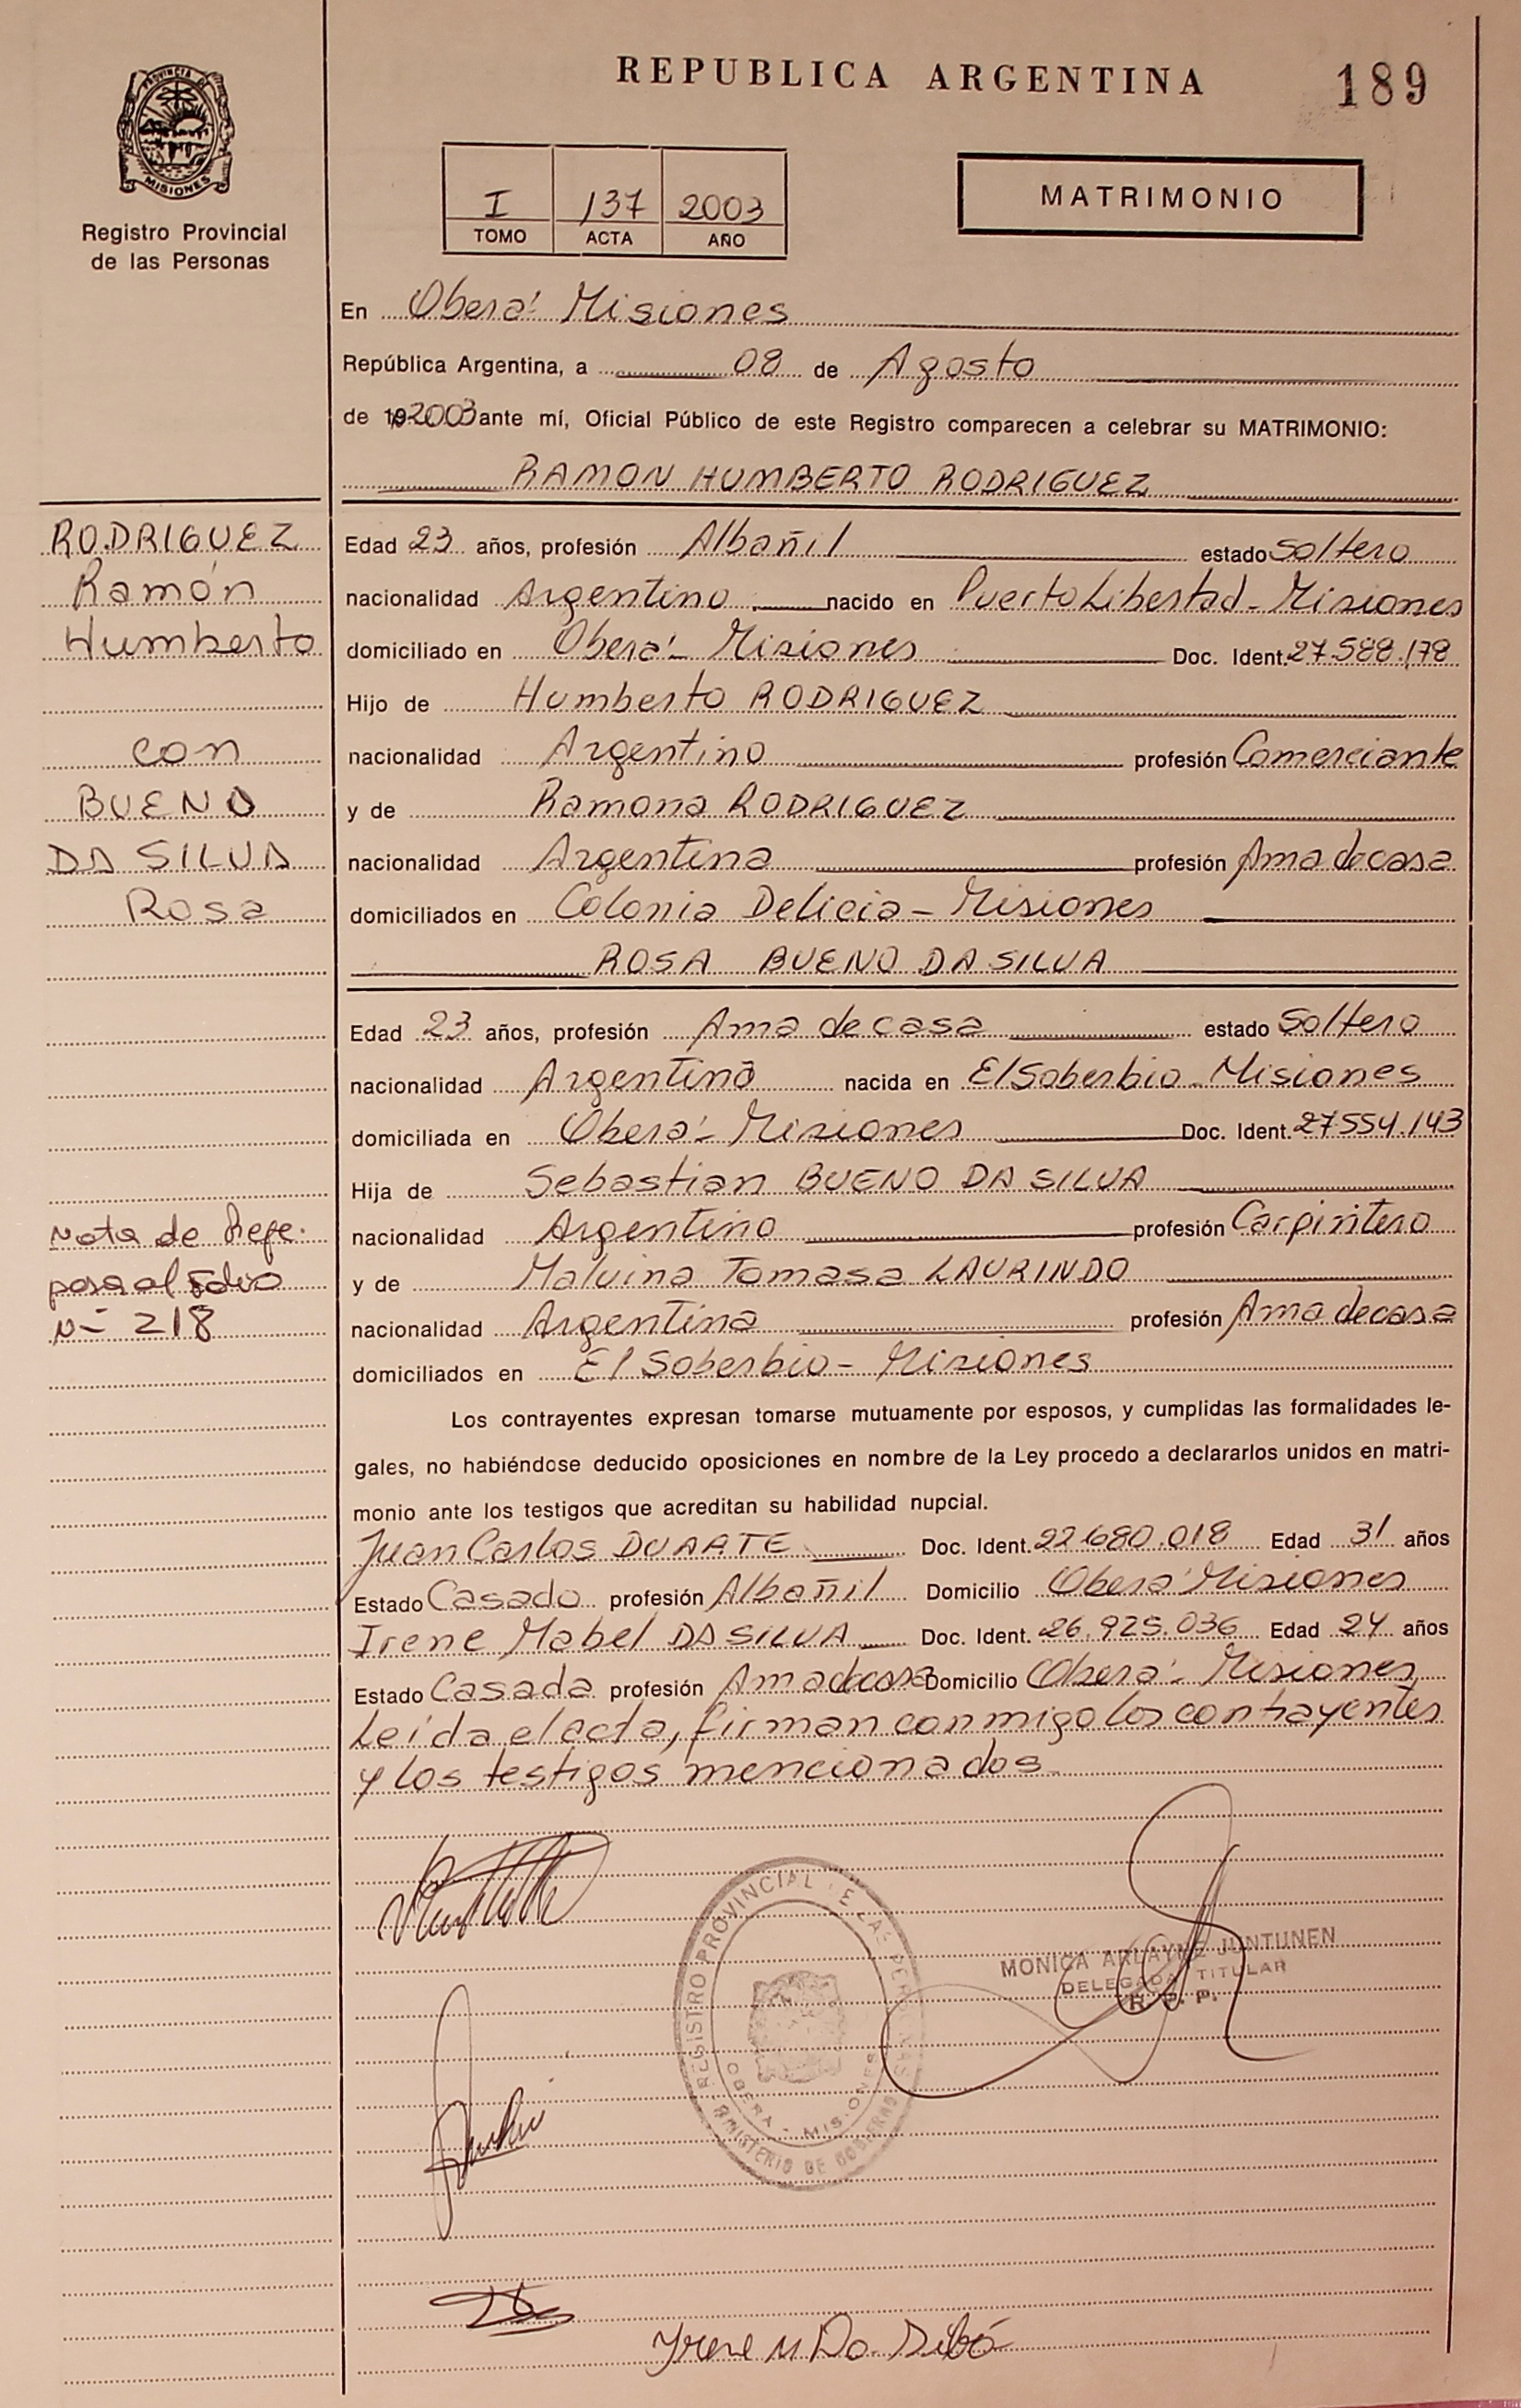 REPUBLICA ARGENTINA
189
PROVINCIA DE
MISIONES
Registro Provincial
de las Personas
I 137 2003
TOMO ACTA AÑO
MATRIMONIO
En Oberá - Misiones
República Argentina, a 08 de Agosto
de 192003 ante mí, Oficial Público de este Registro comparecen a celebrar su MATRIMONIO:
RAMON HUMBERTO RODRIGUEZ
RODRIGUEZ
Ramón
Humberto
con
BUENO
DA SILVA
Rosa
Edad 23 años, profesión Albañil estado Soltero
nacionalidad Argentino nacido en Puerto Libertad - Misiones
domiciliado en Oberá - Misiones Doc. Ident. 27.588.178
Hijo de Humberto RODRIGUEZ
nacionalidad Argentino profesión Comerciante
y de Ramona RODRIGUEZ
nacionalidad Argentina profesión Ama de casa
domiciliados en Colonia Delicia - Misiones
ROSA BUENO DA SILVA
Edad 23 años, profesión Ama de casa estado Soltero
nacionalidad Argentina nacida en El Soberbio - Misiones
domiciliada en Oberá - Misiones Doc. Ident. 27554.143
Hija de Sebastian BUENO DA SILVA
nacionalidad Argentino profesión Carpintero
y de Malvina Tomasa LAURINDO
nacionalidad Argentina profesión Ama de casa
domiciliados en El Soberbio - Misiones
Nota de Refe.
pasa al Folio
N- 218
Los contrayentes expresan tomarse mutuamente por esposos, y cumplidas las formalidades le-
gales, no habiéndose deducido oposiciones en nombre de la Ley procedo a declararlos unidos en matri-
monio ante los testigos que acreditan su habilidad nupcial.
Juan Carlos DUARTE Doc. Ident. 22680.018 Edad 31 años
Estado Casado profesión Albañil Domicilio Oberá Misiones
Irene Mabel DA SILVA Doc. Ident. 26.925.036 Edad 24 años
Estado Casada profesión Ama de casa Domicilio Oberá - Misiones
Leída el acta, firman conmigo los contrayentes
y los testigos mencionados.
REGISTRO PROVINCIAL DE LAS PERSONAS
MINISTERIO DE GOBIERNO
OBERA - MISIONES
MONICA ARLAYNE JUNTUNEN
DELEGADA TITULAR
R. P. P.
Irene M Da